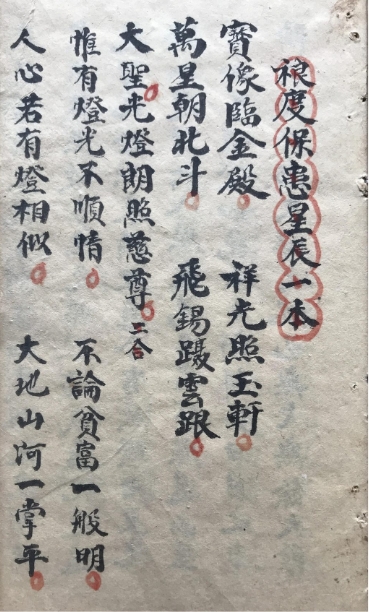 度保患星辰一本
寶像臨金殿 祥光照玉軒
萬星朝北斗 飛錫躡雲跟
大聖光燈朗照慈尊 三合
惟有燈光不順情 不論貧富一般明
人心若有燈相似 大地山河一掌平